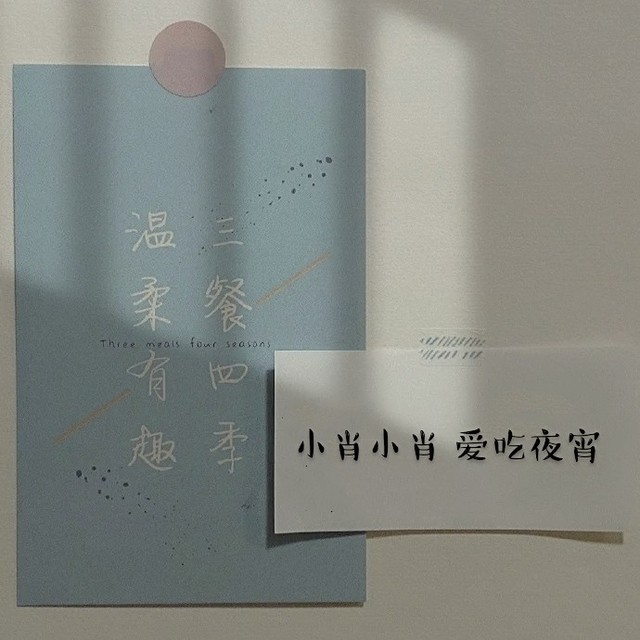 三餐四季
温柔有趣
Three meals four seasons
小肖小肖 爱吃夜宵